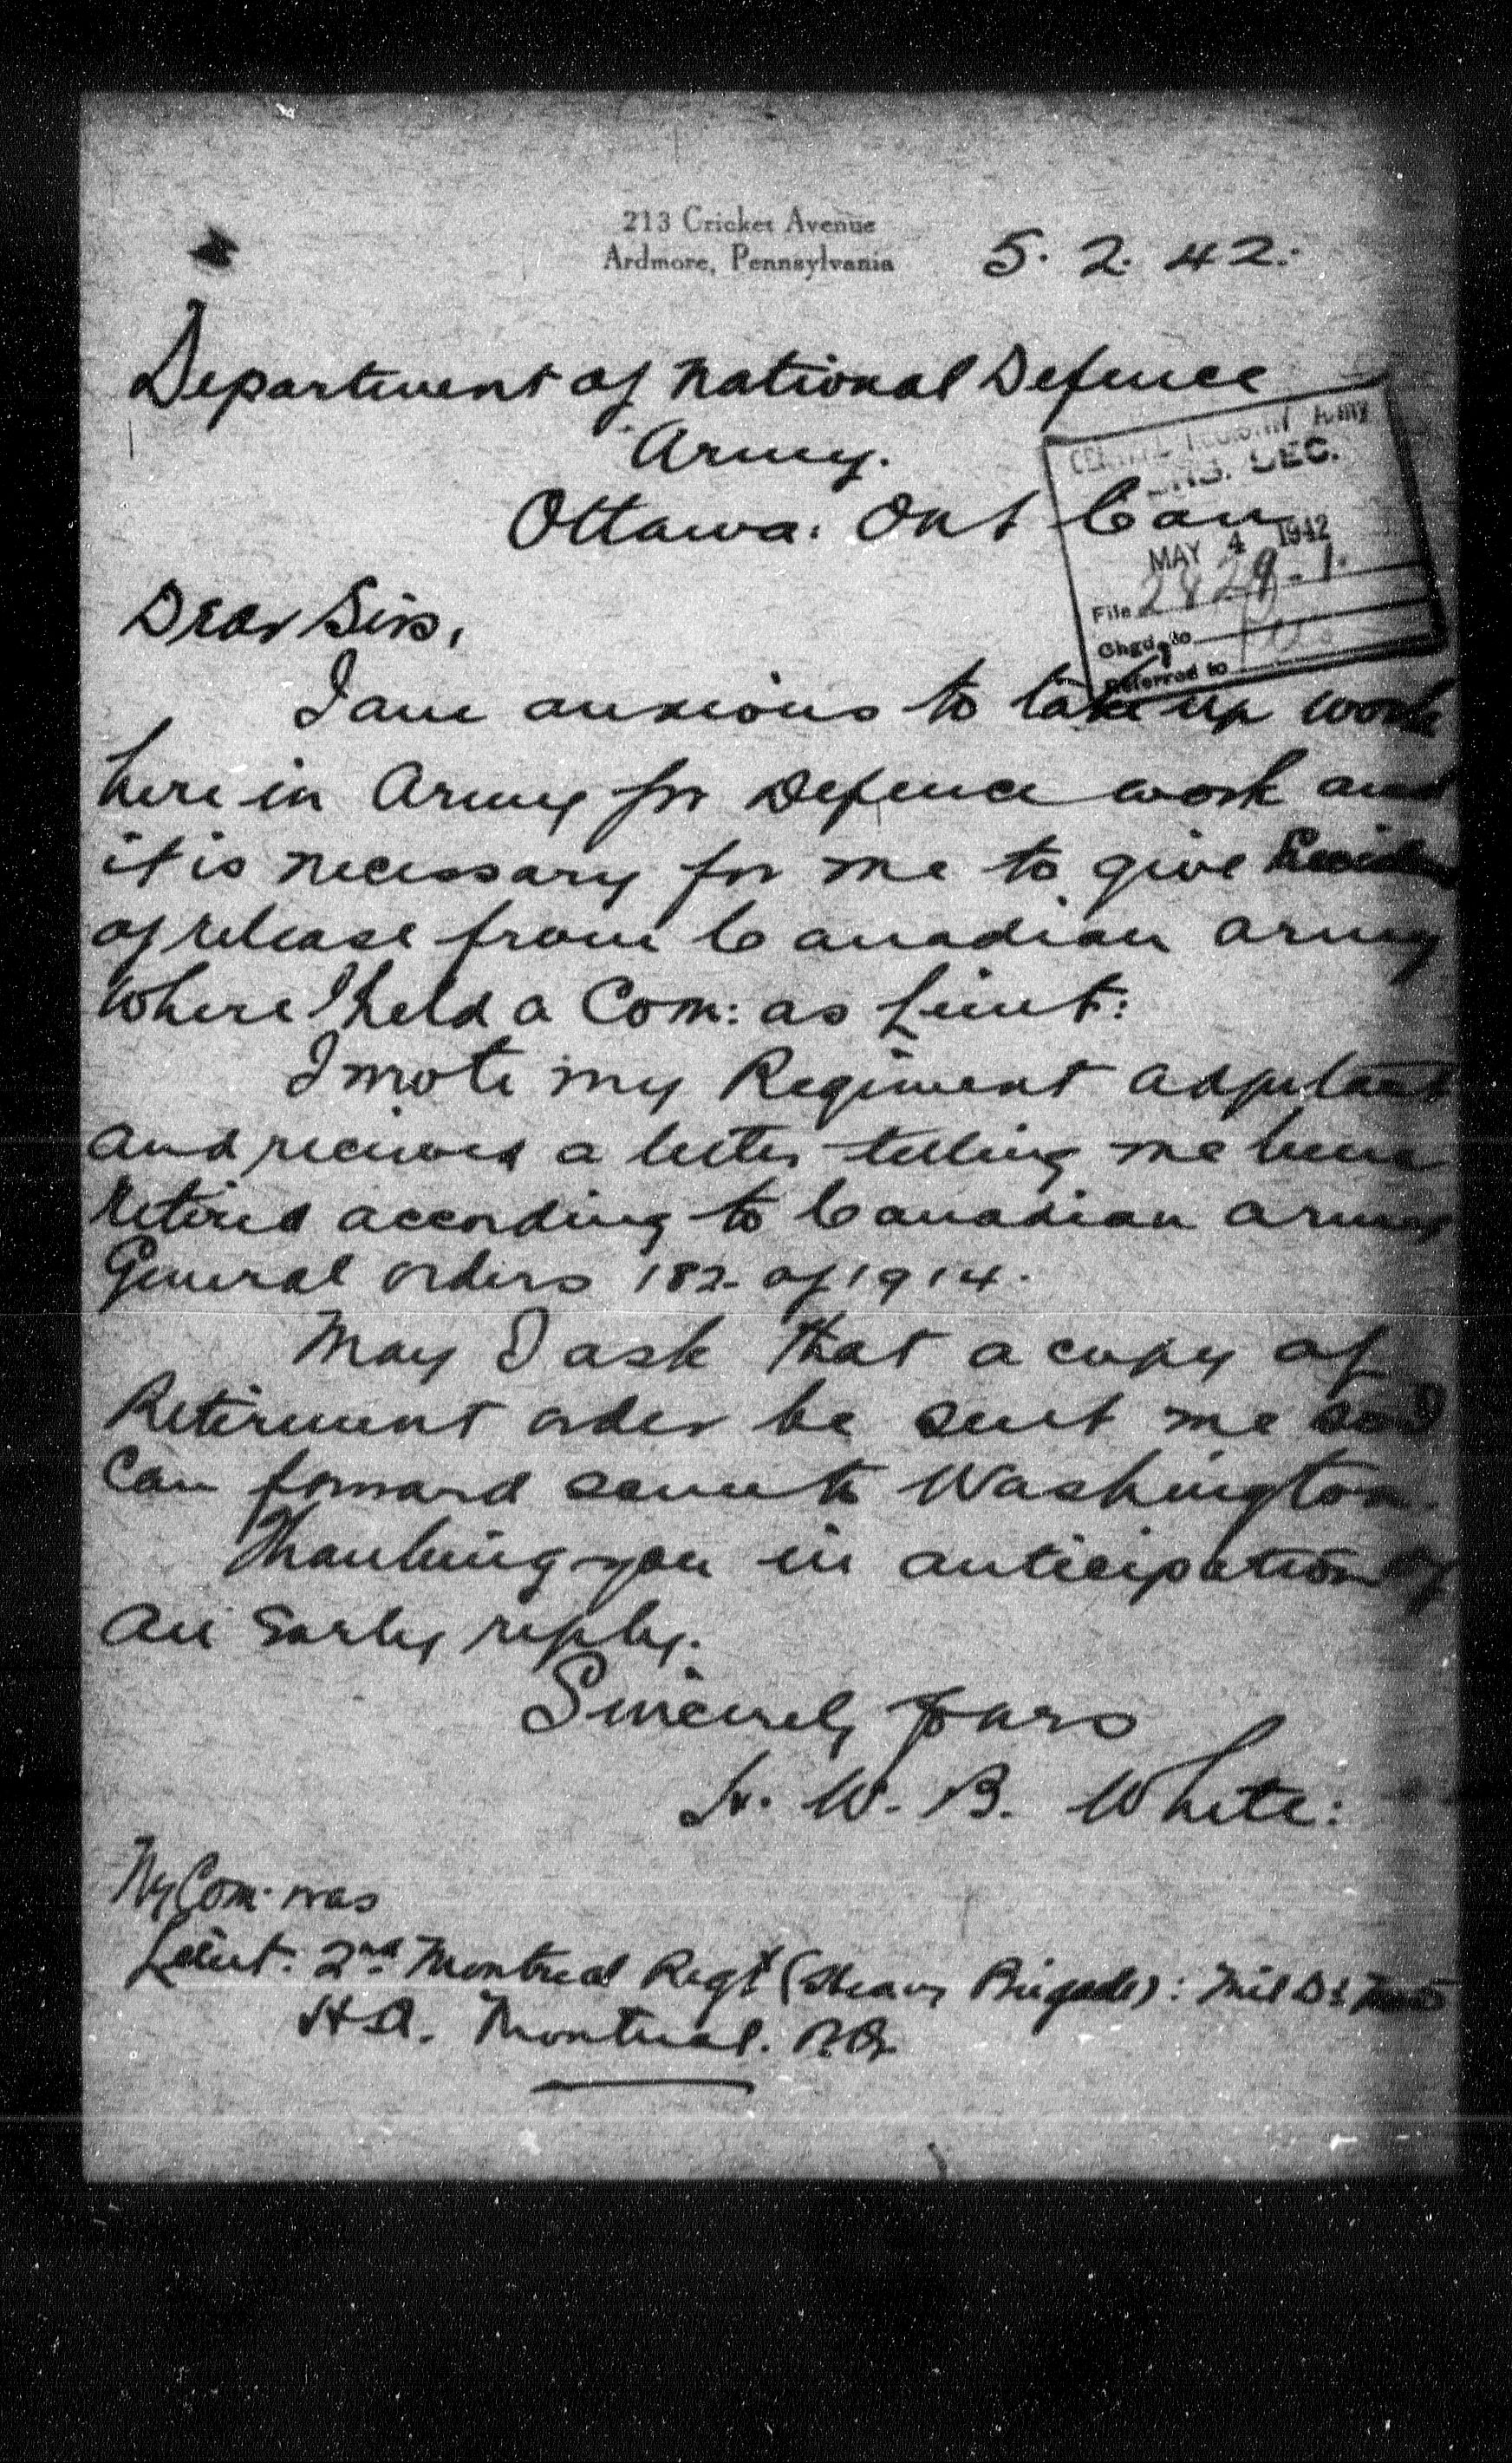 213 Cricket Avenue
Ardmore, Pennsylvania
5. 2. 42.
Department of National Defence
Army.
Ottawa. Ont Can
MAY 4 1942
File 2829-1.
Chgd. to
Referred to
Dear Sirs,
I am anxious to take up work
here in Army for Defence work and
it is necessary for me to give
of release from Canadian Army
where I held a Com: as Lieut:
I wrote my Regiment adjutant
and received a letter telling me been
retired according to Canadian Army
General orders 182 of 1914.
May I ask that a copy of
Retirement order be sent me so I
can forward same to Washington.
Thanking you in anticipation of
an Early reply.
Sincerely yours
W. B. White:
My Com. was
Lieut: 2nd Montreal Regt (Heavy Brigade): Mil
Montreal. P.Q.